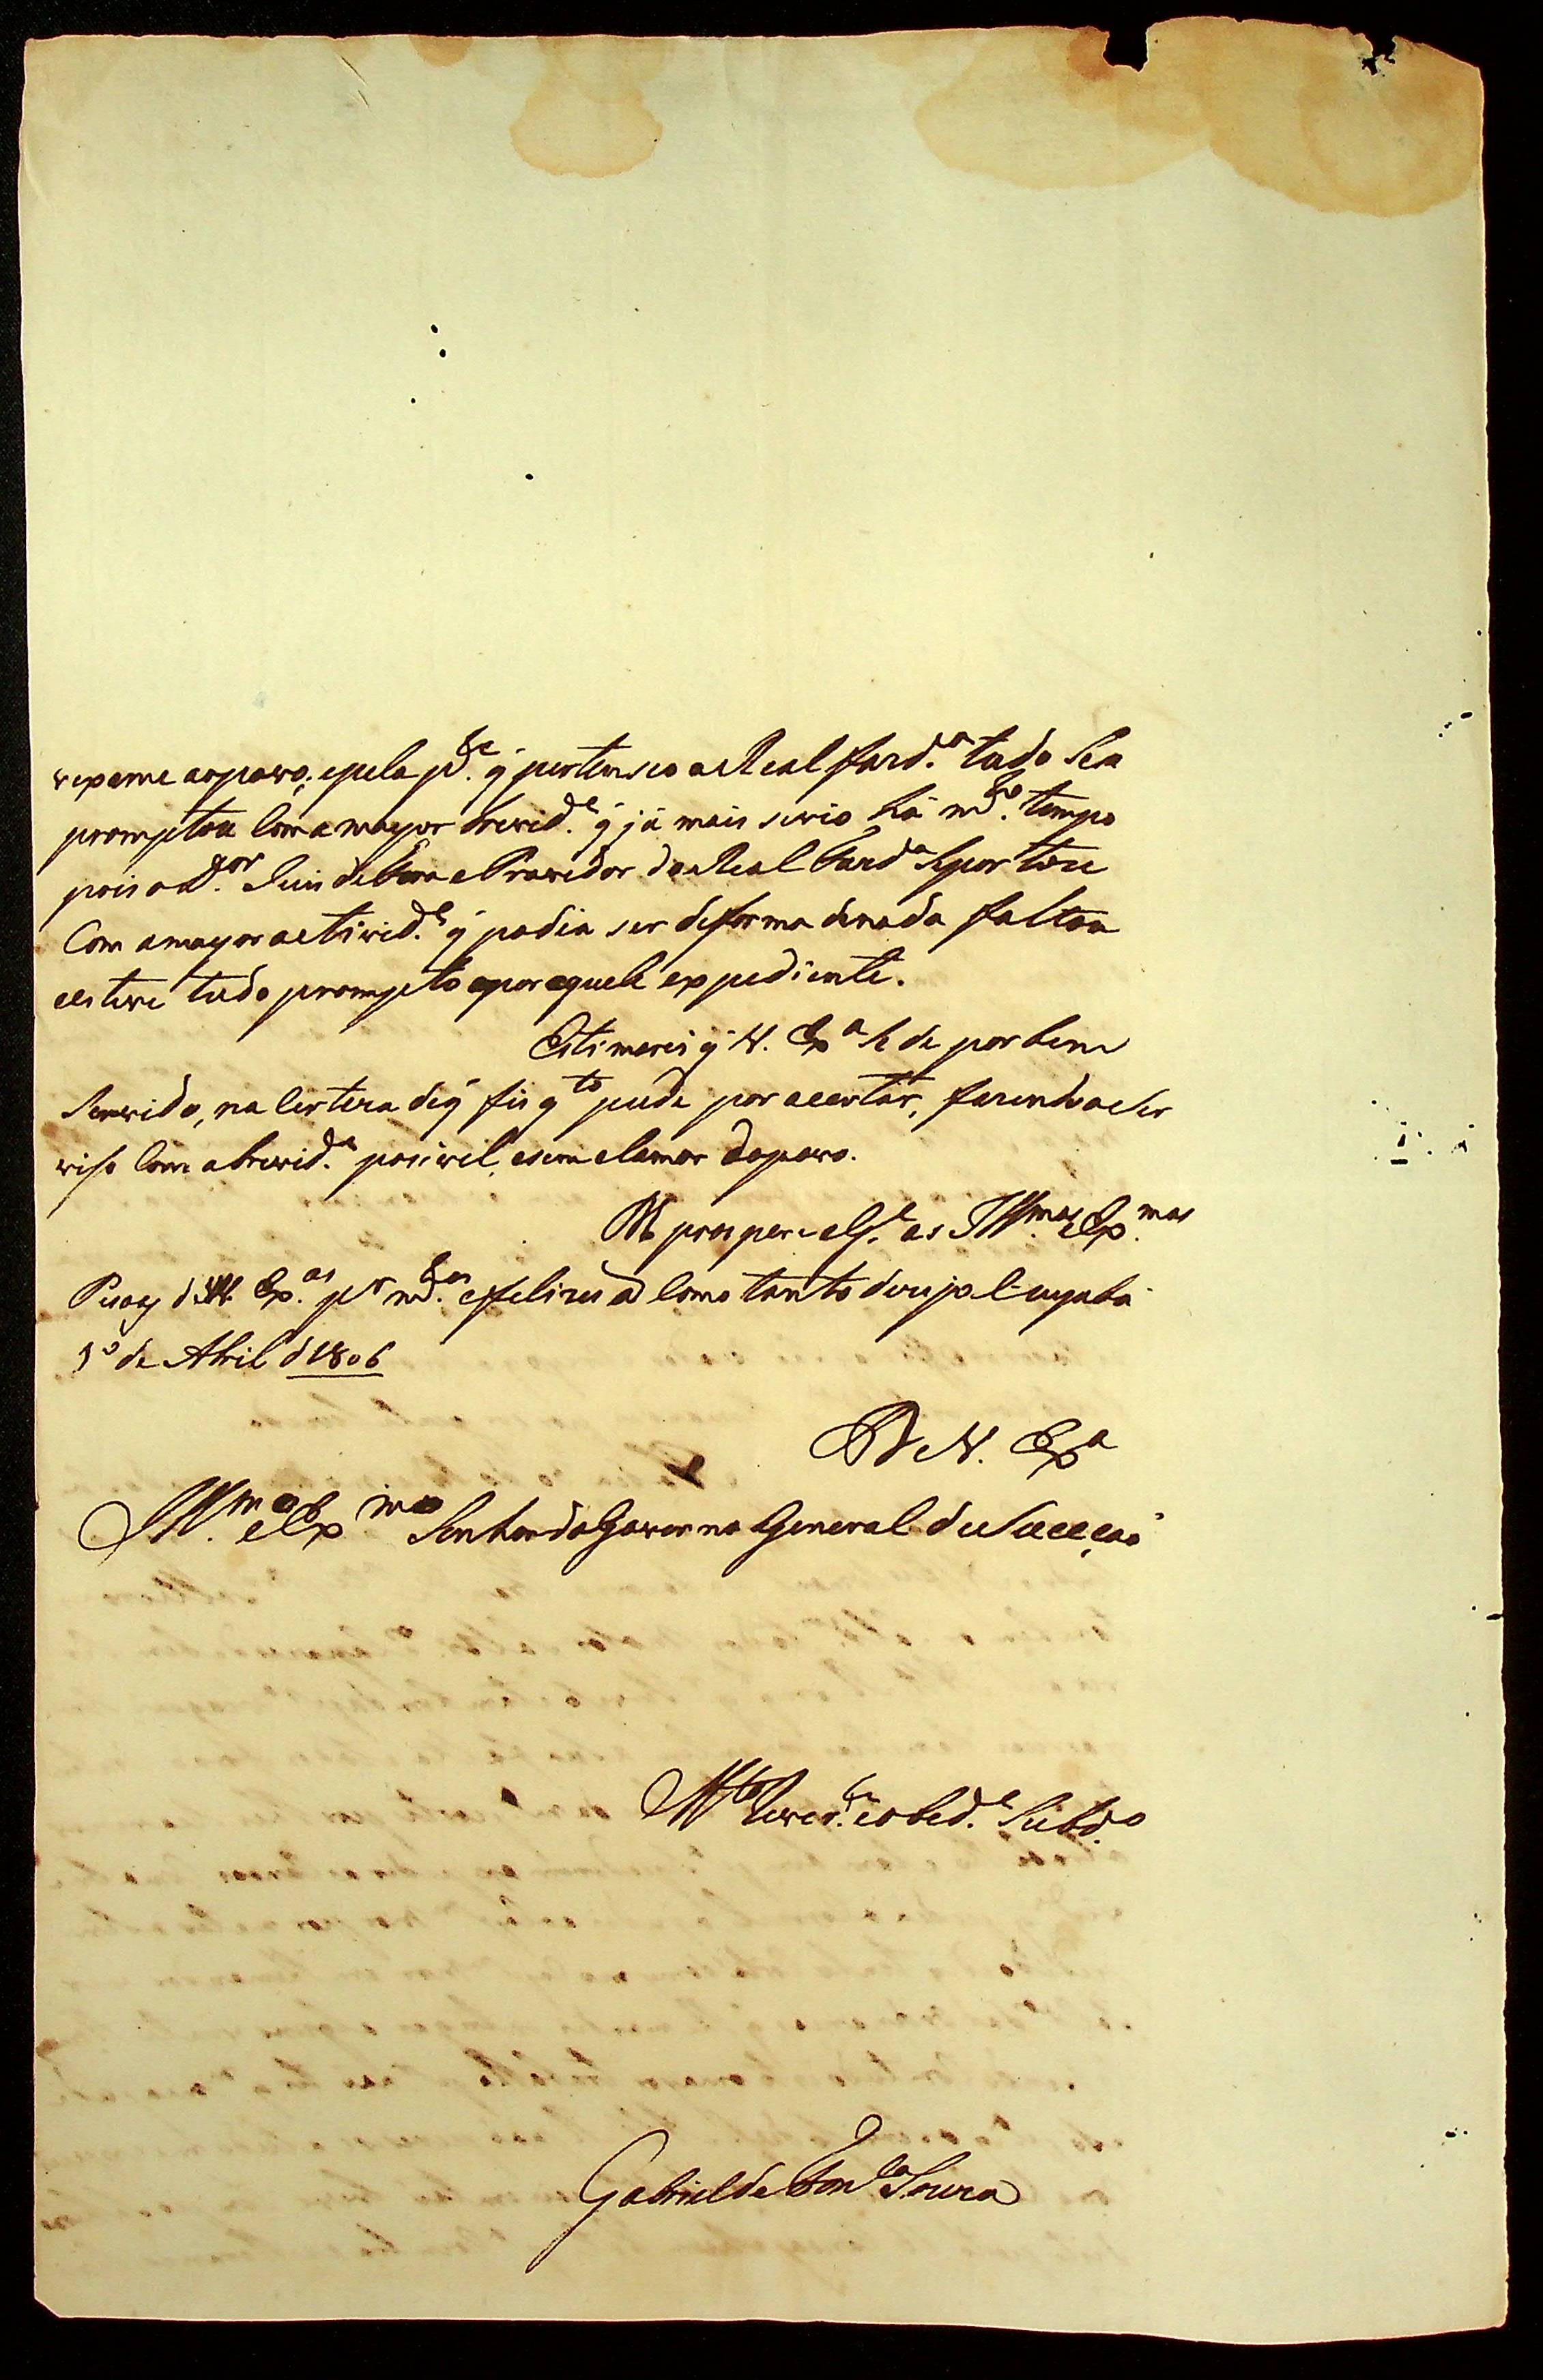 vexame ao povo; e pela p.te q̃ pertenseo a Real fazd.a tudo Sea
promptou Com a mayor brevid.e q̃ já mais se vio há m.to tempo
pois o D.or Juis de fora e Provedor da Real fazd.a Seportou
Com a mayor actived.e q̃ podia ser deforma de nada faltou
e esteve tudo prompto e por aquele expediente.
Estimarei q̃ V. Ex.a Se de por bem
Servido, na Certeza de q̃ fis q.to pude por acertar, fazendo a Ser
viso Com a brevid.e posivel, e sem clamor do povo.
D.s prospere e g.e as Ill.mas e Ex.mas
Pesoas de VV. Ex.as p.r m.tos e felizes a Como tanto dezejo Cuyaba
1º de Abril d 1806
De V. Ex.a
Ill.mo e Ex.mo Senhor do Governo General da Succeçaõ
M.to Rever.te e obed.e Subd.o
Gabriel da Fon.ca Souza